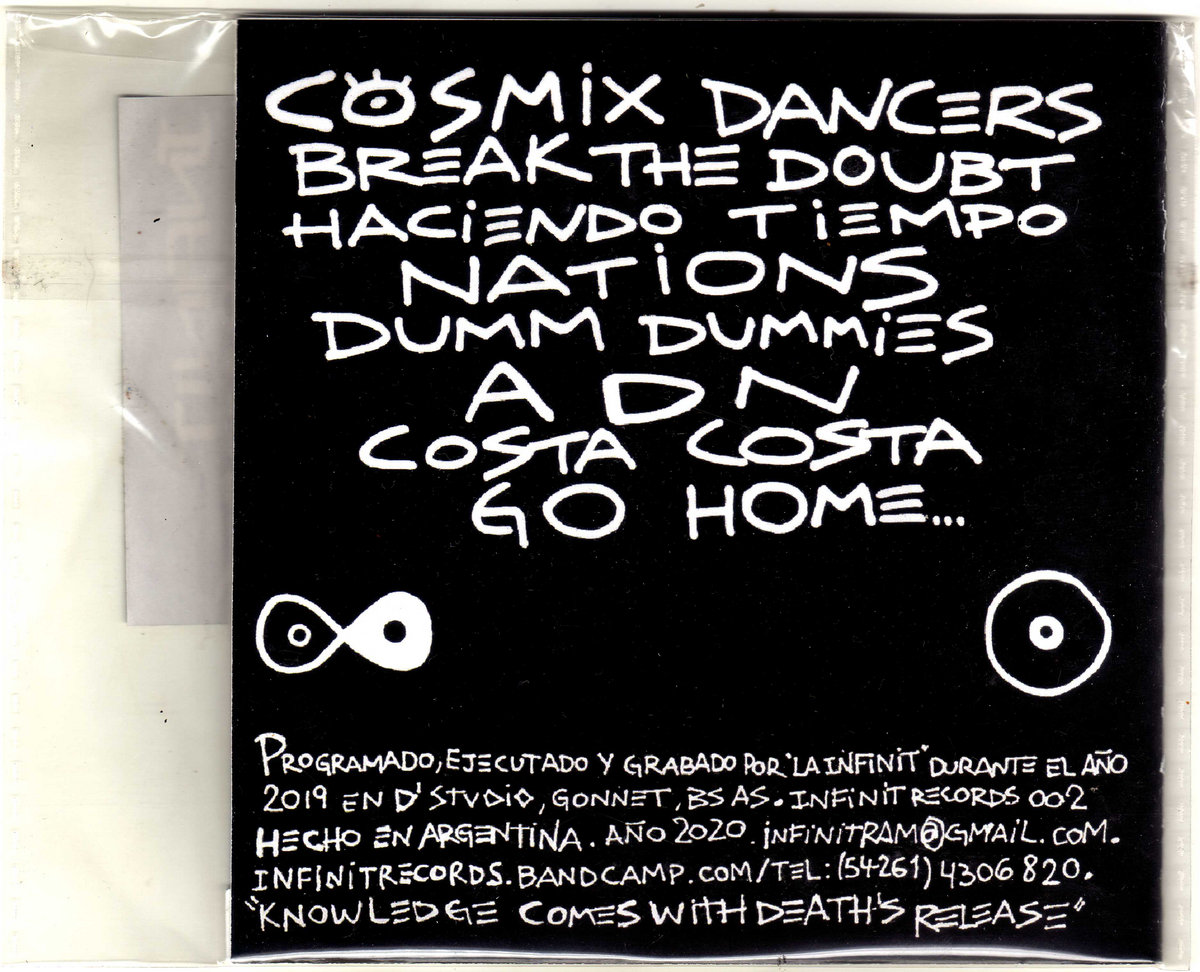 COSMiX DANCERS
BREAK THE DOUBT
HACiENDO TiEMPO
NATiONS
DUMM DUMMiES
A D N
COSTA COSTA
GO HOME...
PROGRAMADO, EJECUTADO Y GRABADO POR "LA INFINIT" DURANTE EL AÑO
2019 EN D' STUDIO, GONNET, BS AS. INFINIT RECORDS 002
HECHO EN ARGENTINA. AÑO 2020. iNFiNiTRAM@GMAiL.COM.
INFINITRECORDS.BANDCAMP.COM/TEL: (54261) 4306 820.
"KNOWLEDGE COMES WITH DEATH'S RELEASE"